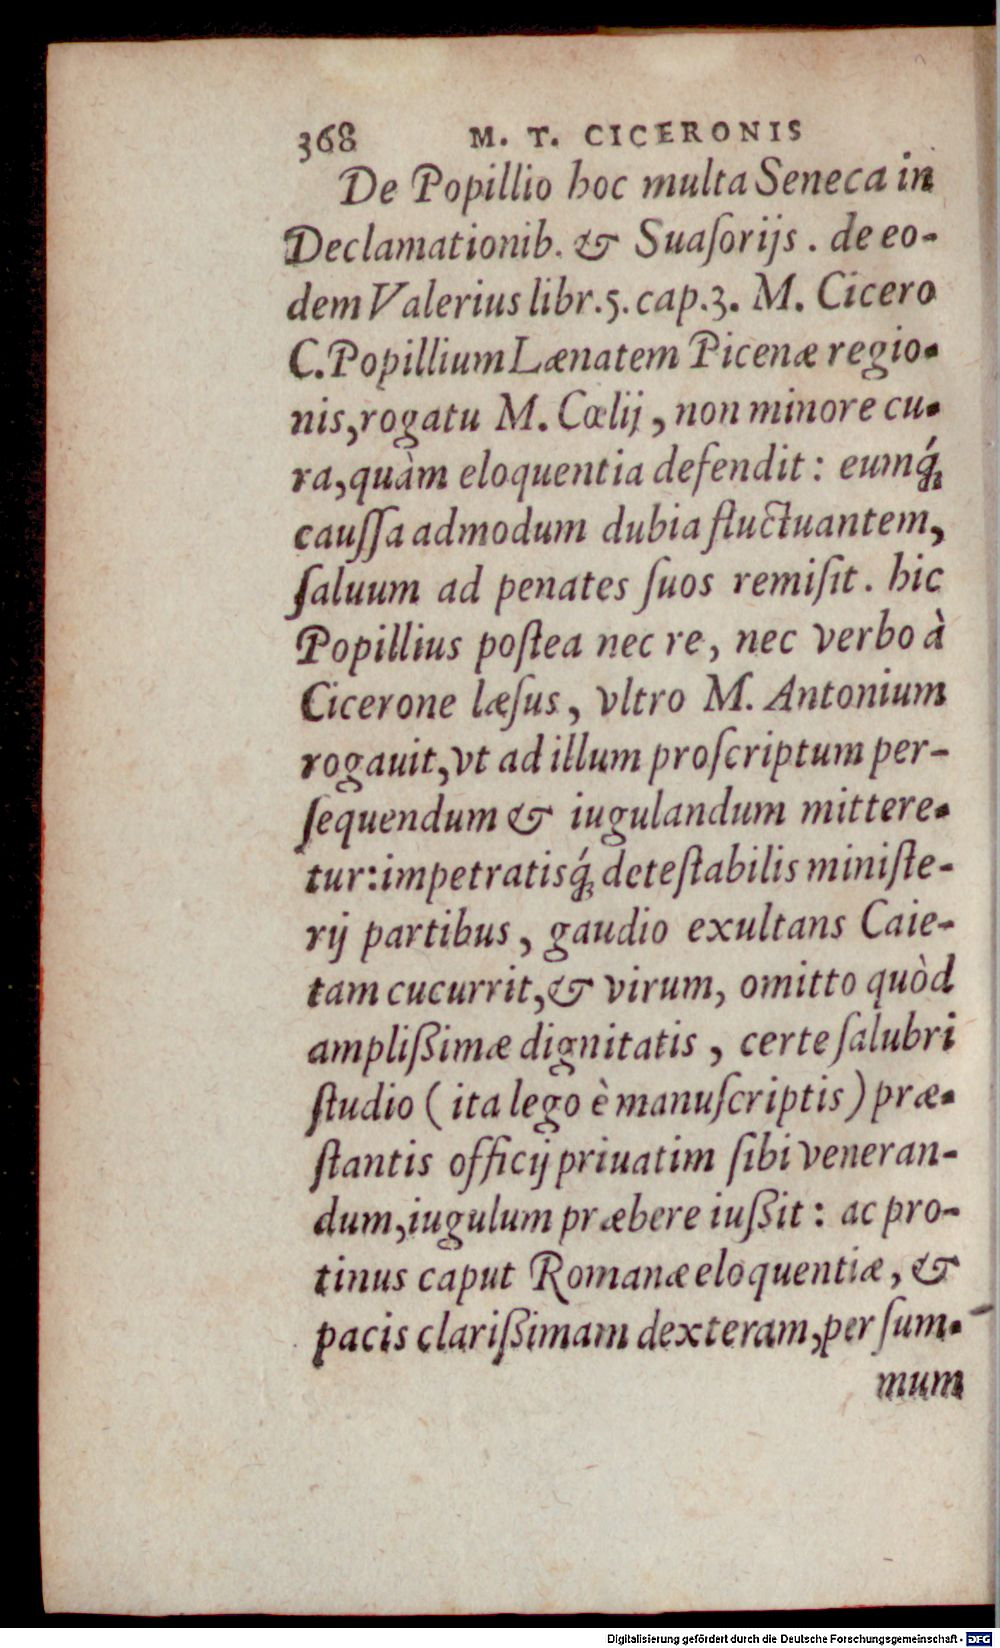 368 M. T. CICERONIS
De Popillio hoc multa Seneca in
Declamationib. & Suaſorijs. de eo-
dem Valerius libr. 5. cap. 3. M. Cicero
C. Popillium Lænatem Picenæ regio-
nis, rogatu M. Cœlij, non minore cu-
ra, quàm eloquentia defendit: eumq́;
cauſſa admodum dubia fluctuantem,
ſaluum ad penates ſuos remiſit. hic
Popillius poſtea nec re, nec verbo à
Cicerone læſus, vltro M. Antonium
rogauit, vt ad illum proſcriptum per-
ſequendum & iugulandum mittere-
tur: impetratisq́; deteſtabilis miniſte-
rij partibus, gaudio exultans Caie-
tam cucurrit, & virum, omitto quòd
ampliſſimæ dignitatis, certe ſalubri
ſtudio (ita lego è manuſcriptis) præ-
ſtantis officij priuatim ſibi veneran-
dum, iugulum præbere iuſſit: ac pro-
tinus caput Romanæ eloquentiæ, &
pacis clariſſimam dexteram, per ſum-
mum
Digitalisierung gefördert durch die Deutsche Forschungsgemeinschaft - DFG